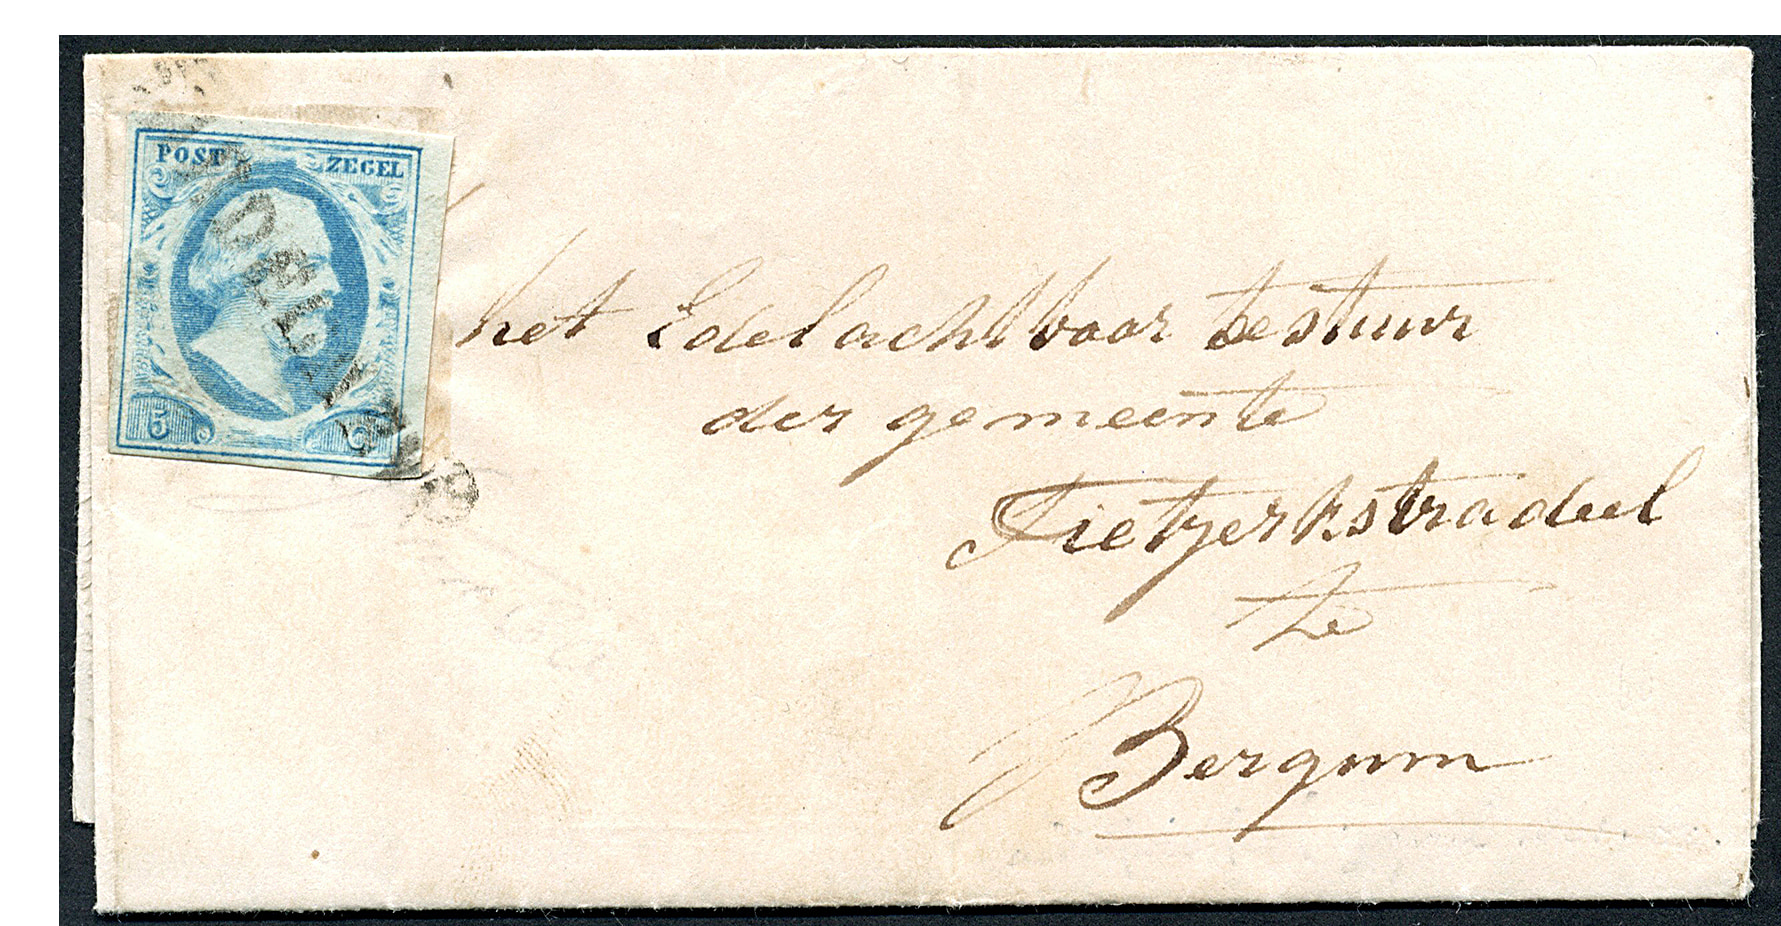 POST ZEGEL
5 C
het Edelachtbaar bestuur
der gemeente
Tietjerkstradeel
te
Bergum